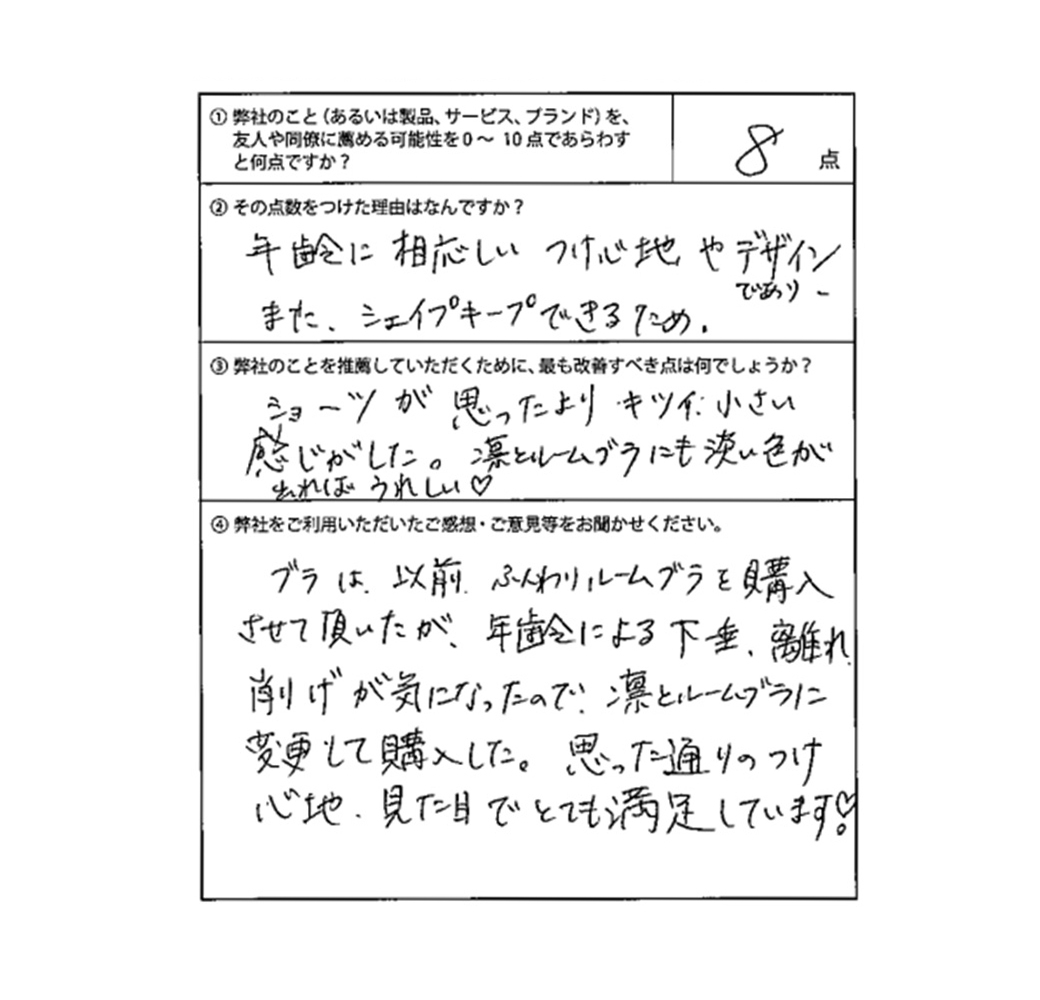 ① 弊社のこと（あるいは製品、サービス、ブランド）を、
友人や同僚に薦める可能性を0～ 10点であらわす
と何点ですか？
8 点
② その点数をつけた理由はなんですか？
年齢に相応しい つけ心地 や デザイン
であり、
また、シェイプキープできるため。
③ 弊社のことを推薦していただくために、最も改善すべき点は何でしょうか？
ショーツが 思ったより キツイ、小さい
感じがした。凛とルームブラにも淡い色が
出ればうれしい♡
④ 弊社をご利用いただいたご感想・ご意見等をお聞かせください。
ブラは、以前、ふんわりルームブラを購入
させて頂いたが、年齢による下垂、離れ、
削げが気になったので、凛とルームブラに
変更して購入した。思った通りのつけ
心地、見た目でとても満足しています♡